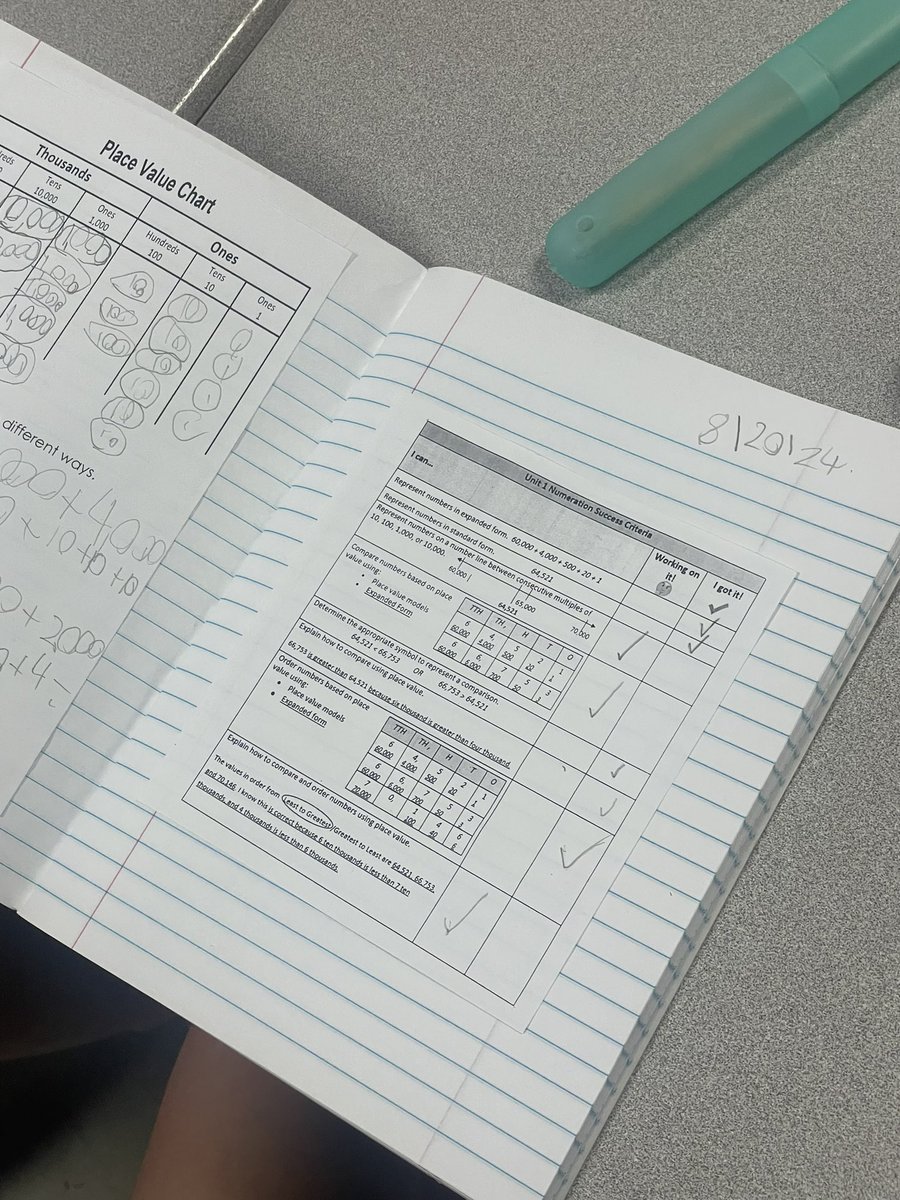 Place Value Chart
Thousands
Ones
Tens
10,000
Ones
1,000
Hundreds
100
Tens
10
Ones
1
different ways.
8/20/24
Unit 1 Numeration Success Criteria
I can...
Working on it!
I got it!
Represent numbers in expanded form. 60,000 + 4,000 + 500 + 20 + 1
Represent numbers in standard form. 64,521
Represent numbers on a number line between consecutive multiples of
10, 100, 1,000, or 10,000.
60,000
64,521
65,000
70,000
Compare numbers based on place
value using:
• Place value models
• Expanded Form
TTH TH, H T O
6 4, 5 2 1
60,000 4,000 500 20 1
6 6, 7 5 3
60,000 6,000 700 50 3
Determine the appropriate symbol to represent a comparison.
64,521 < 66,753 OR 66,753 > 64,521
Explain how to compare using place value.
66,753 is greater than 64,521 because six thousand is greater than four thousand.
Order numbers based on place
value using:
• Place value models
• Expanded form
TTH TH, H T O
6 4, 5 2 1
60,000 4,000 500 20 1
6 6, 7 5 3
60,000 6,000 700 50 3
7 0, 1 4 6
70,000 100 40 6
Explain how to compare and order numbers using place value.
The values in order from Least to Greatest/Greatest to Least are 64,521, 66,753,
and 70,146. I know this is correct because 6 ten thousands is less than 7 ten
thousands, and 4 thousands is less than 6 thousands.